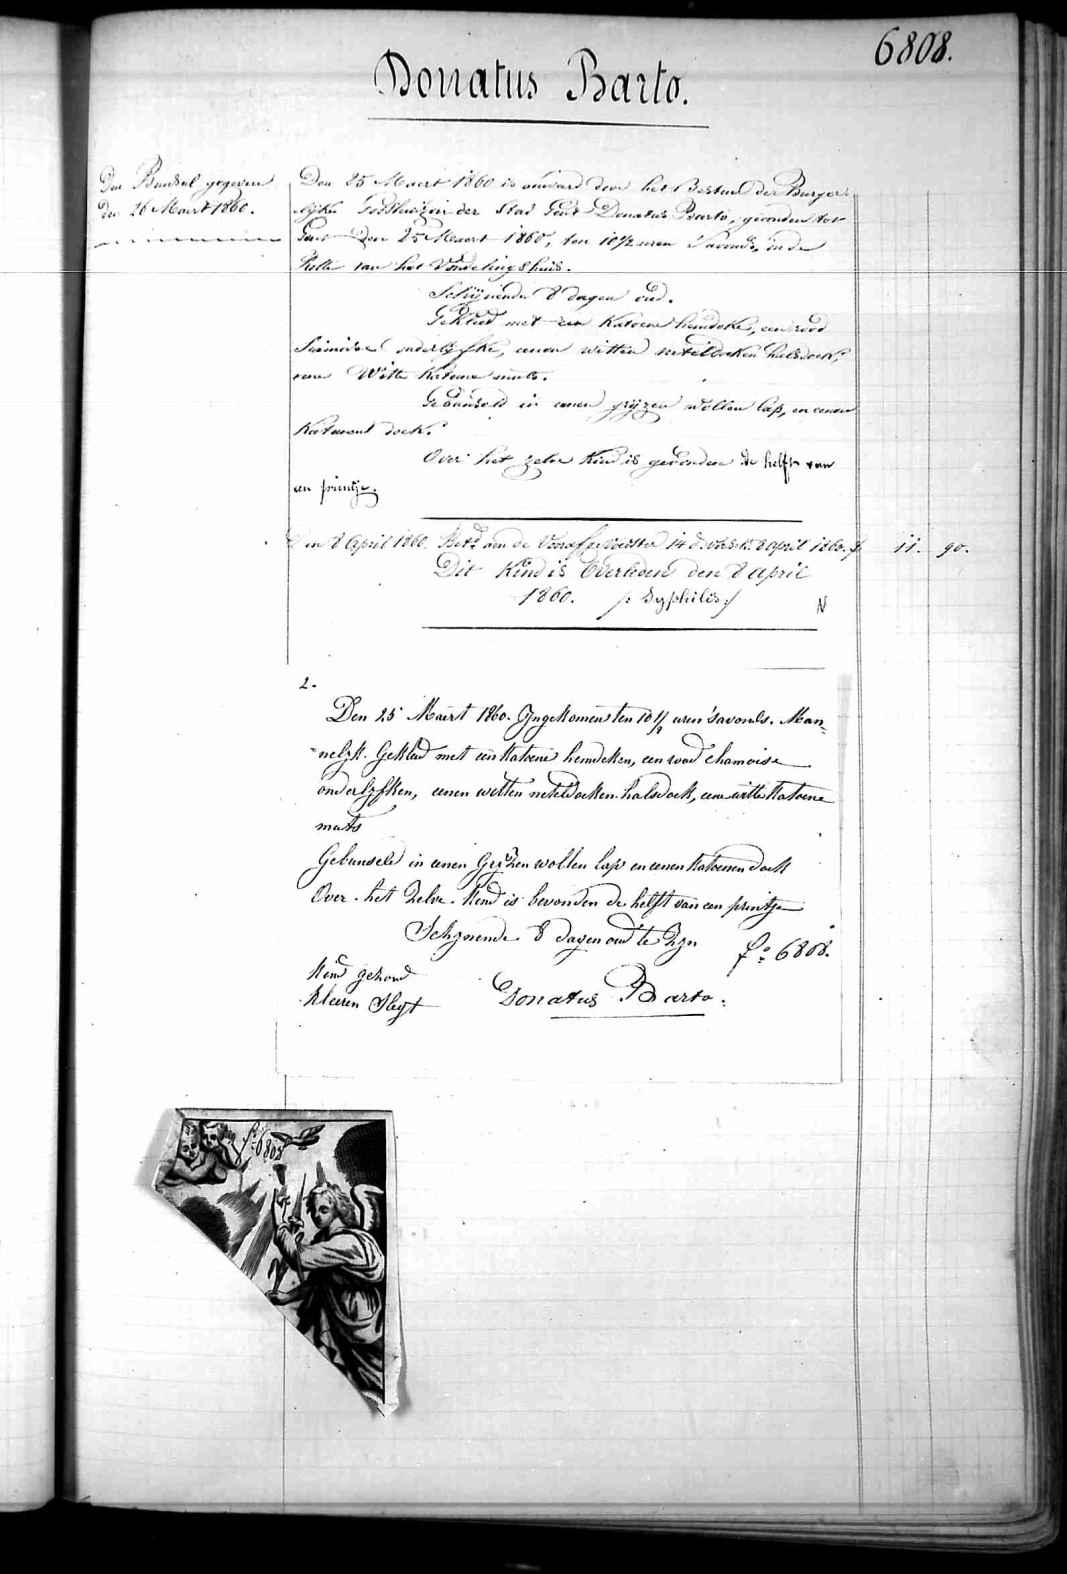 6808.
Donatus Barto.
Den Bundsel gegeven
den 26 Maart 1860.
Den 25 Maart 1860 is aanvard door het Bestuur der Burger-
lyke Godshuizen der Stad Gent Donatus Barto, gevonden tot
Gent den 25 Maart 1860, ten 10 1/2 uren s'avonds, in de
Rolle van het Vondelingshuis.
Schijnende 8 dagen oud.
Gekleed met een katoene hemdeke, een rood
onderlyfke, eenen witten neteldoeken halsdoek,
eene Witte katoene muts.
Gebunseld in eenen grijzen wollen lap, en eenen
katoenen doek.
Over het zelve Kind is gevonden de helft van
een printje.
Den 8 April 1860. Bet. aan de Voorafge 14 d. 8 april 1860. f 11. 90.
Dit Kind is Overleden den 8 april
1860. /: Syphilis :/ N
2.
Den 25 Maart 1860. Ingekomen ten 10 1/2 uren 'savonds. Man-
nelyk. Gekleed met een katoene hemdeken, een rood chamoise
onderlyfken, eenen witten neteldoeken halsdoek, eene witte katoene
muts
Gebunseld in eenen Gryzen wollen lap en eenen katoenen doek
Over het Zelve Kind is bevonden de helft van een printje
Schynende 8 dagen oud te Zyn
fo 6808.
Kind gezond
kleeren Slegt
Donatus Barto.
fo 6808